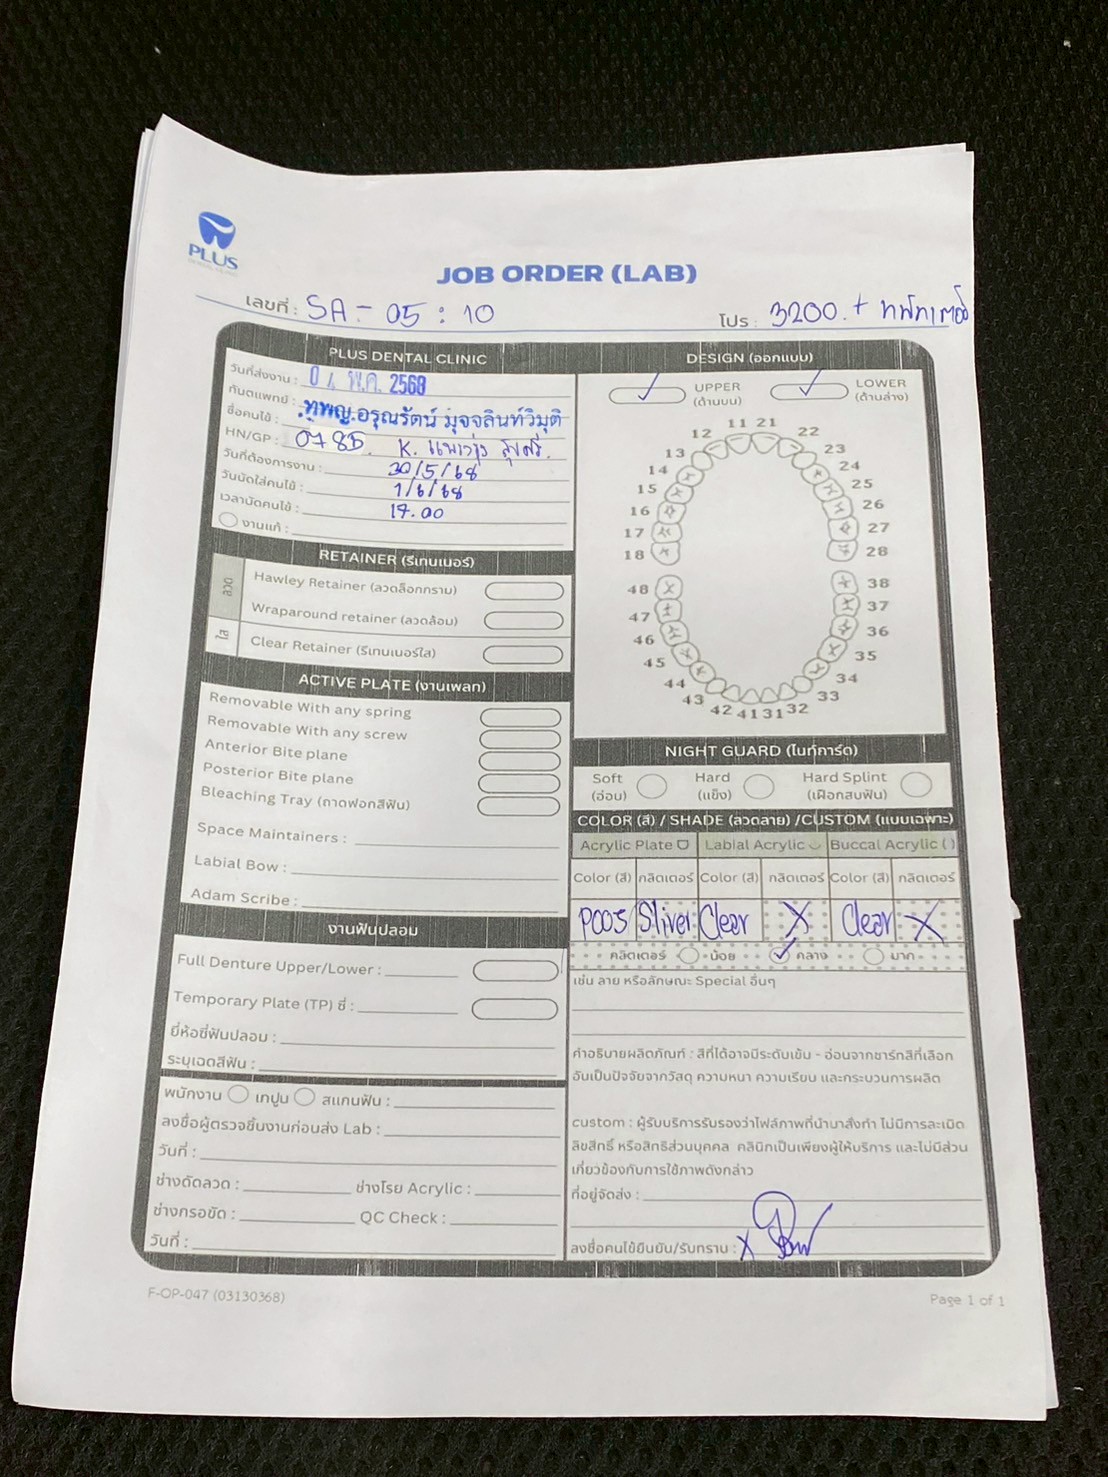 PLUS
JOB ORDER (LAB)
เลขที่ : SA - 05 : 10
โปร : 3200. +
PLUS DENTAL CLINIC
วันที่ส่งงาน : พ.ค. 2568
ทันตแพทย์ : ทพญ.อรุณรัตน์ มุจจลินท์วิมุติ
ชื่อคนไข้ :
HN/GP : K.
วันที่ต้องการงาน : 30/5/68
วันนัดใส่คนไข้ : 1/6/68
เวลานัดคนไข้ : 17.00
งานแก้ :
RETAINER (รีเทนเนอร์)
ลวด
Hawley Retainer (ลวดล็อกกราม)
Wraparound retainer (ลวดล้อม)
ใส
Clear Retainer (รีเทนเนอร์ใส)
ACTIVE PLATE (งานเพลท)
Removable With any spring
Removable With any screw
Anterior Bite plane
Posterior Bite plane
Bleaching Tray (ถาดฟอกสีฟัน)
Space Maintainers :
Labial Bow :
Adam Scribe :
งานฟันปลอม
Full Denture Upper/Lower :
Temporary Plate (TP) ซี่ :
ยี่ห้อซี่ฟันปลอม :
ระบุเฉดสีฟัน :
พนักงาน เทปูน สแกนฟัน :
ลงชื่อผู้ตรวจชิ้นงานก่อนส่ง Lab :
วันที่ :
ช่างดัดลวด : ช่างโรย Acrylic :
ช่างกรอขัด : QC Check :
วันที่ :
DESIGN (ออกแบบ)
UPPER (ด้านบน)
LOWER (ด้านล่าง)
11 21
12 22
13 23
14 24
15 25
16 26
17 27
18 28
48 38
47 37
46 36
45 35
44 34
43 33
42 41 31 32
NIGHT GUARD (ไนท์การ์ด)
Soft (อ่อน)
Hard (แข็ง)
Hard Splint (เฝือกสบฟัน)
COLOR (สี) / SHADE (ลวดลาย) /CUSTOM (แบบเฉพาะ)
Acrylic Plate Labial Acrylic Buccal Acrylic ( )
Color (สี) กลิตเตอร์ Color (สี) กลิตเตอร์ Color (สี) กลิตเตอร์
P005 Sliver Clear X Clear X
กลิตเตอร์ น้อย กลาง มาก
เช่น ลาย หรือลักษณะ Special อื่นๆ
คำอธิบายผลิตภัณฑ์ : สีที่ได้อาจมีระดับเข้ม - อ่อนจากชาร์ทสีที่เลือก
อันเป็นปัจจัยจากวัสดุ ความหนา ความเรียบ และกระบวนการผลิต
custom : ผู้รับบริการรับรองว่าไฟล์ภาพที่นำมาสั่งทำ ไม่มีการละเมิด
ลิขสิทธิ์ หรือสิทธิส่วนบุคคล คลินิกเป็นเพียงผู้ให้บริการ และไม่มีส่วน
เกี่ยวข้องกับการใช้ภาพดังกล่าว
ที่อยู่จัดส่ง :
ลงชื่อคนไข้ยืนยัน/รับทราบ : X
F-OP-047 (03130368)
Page 1 of 1